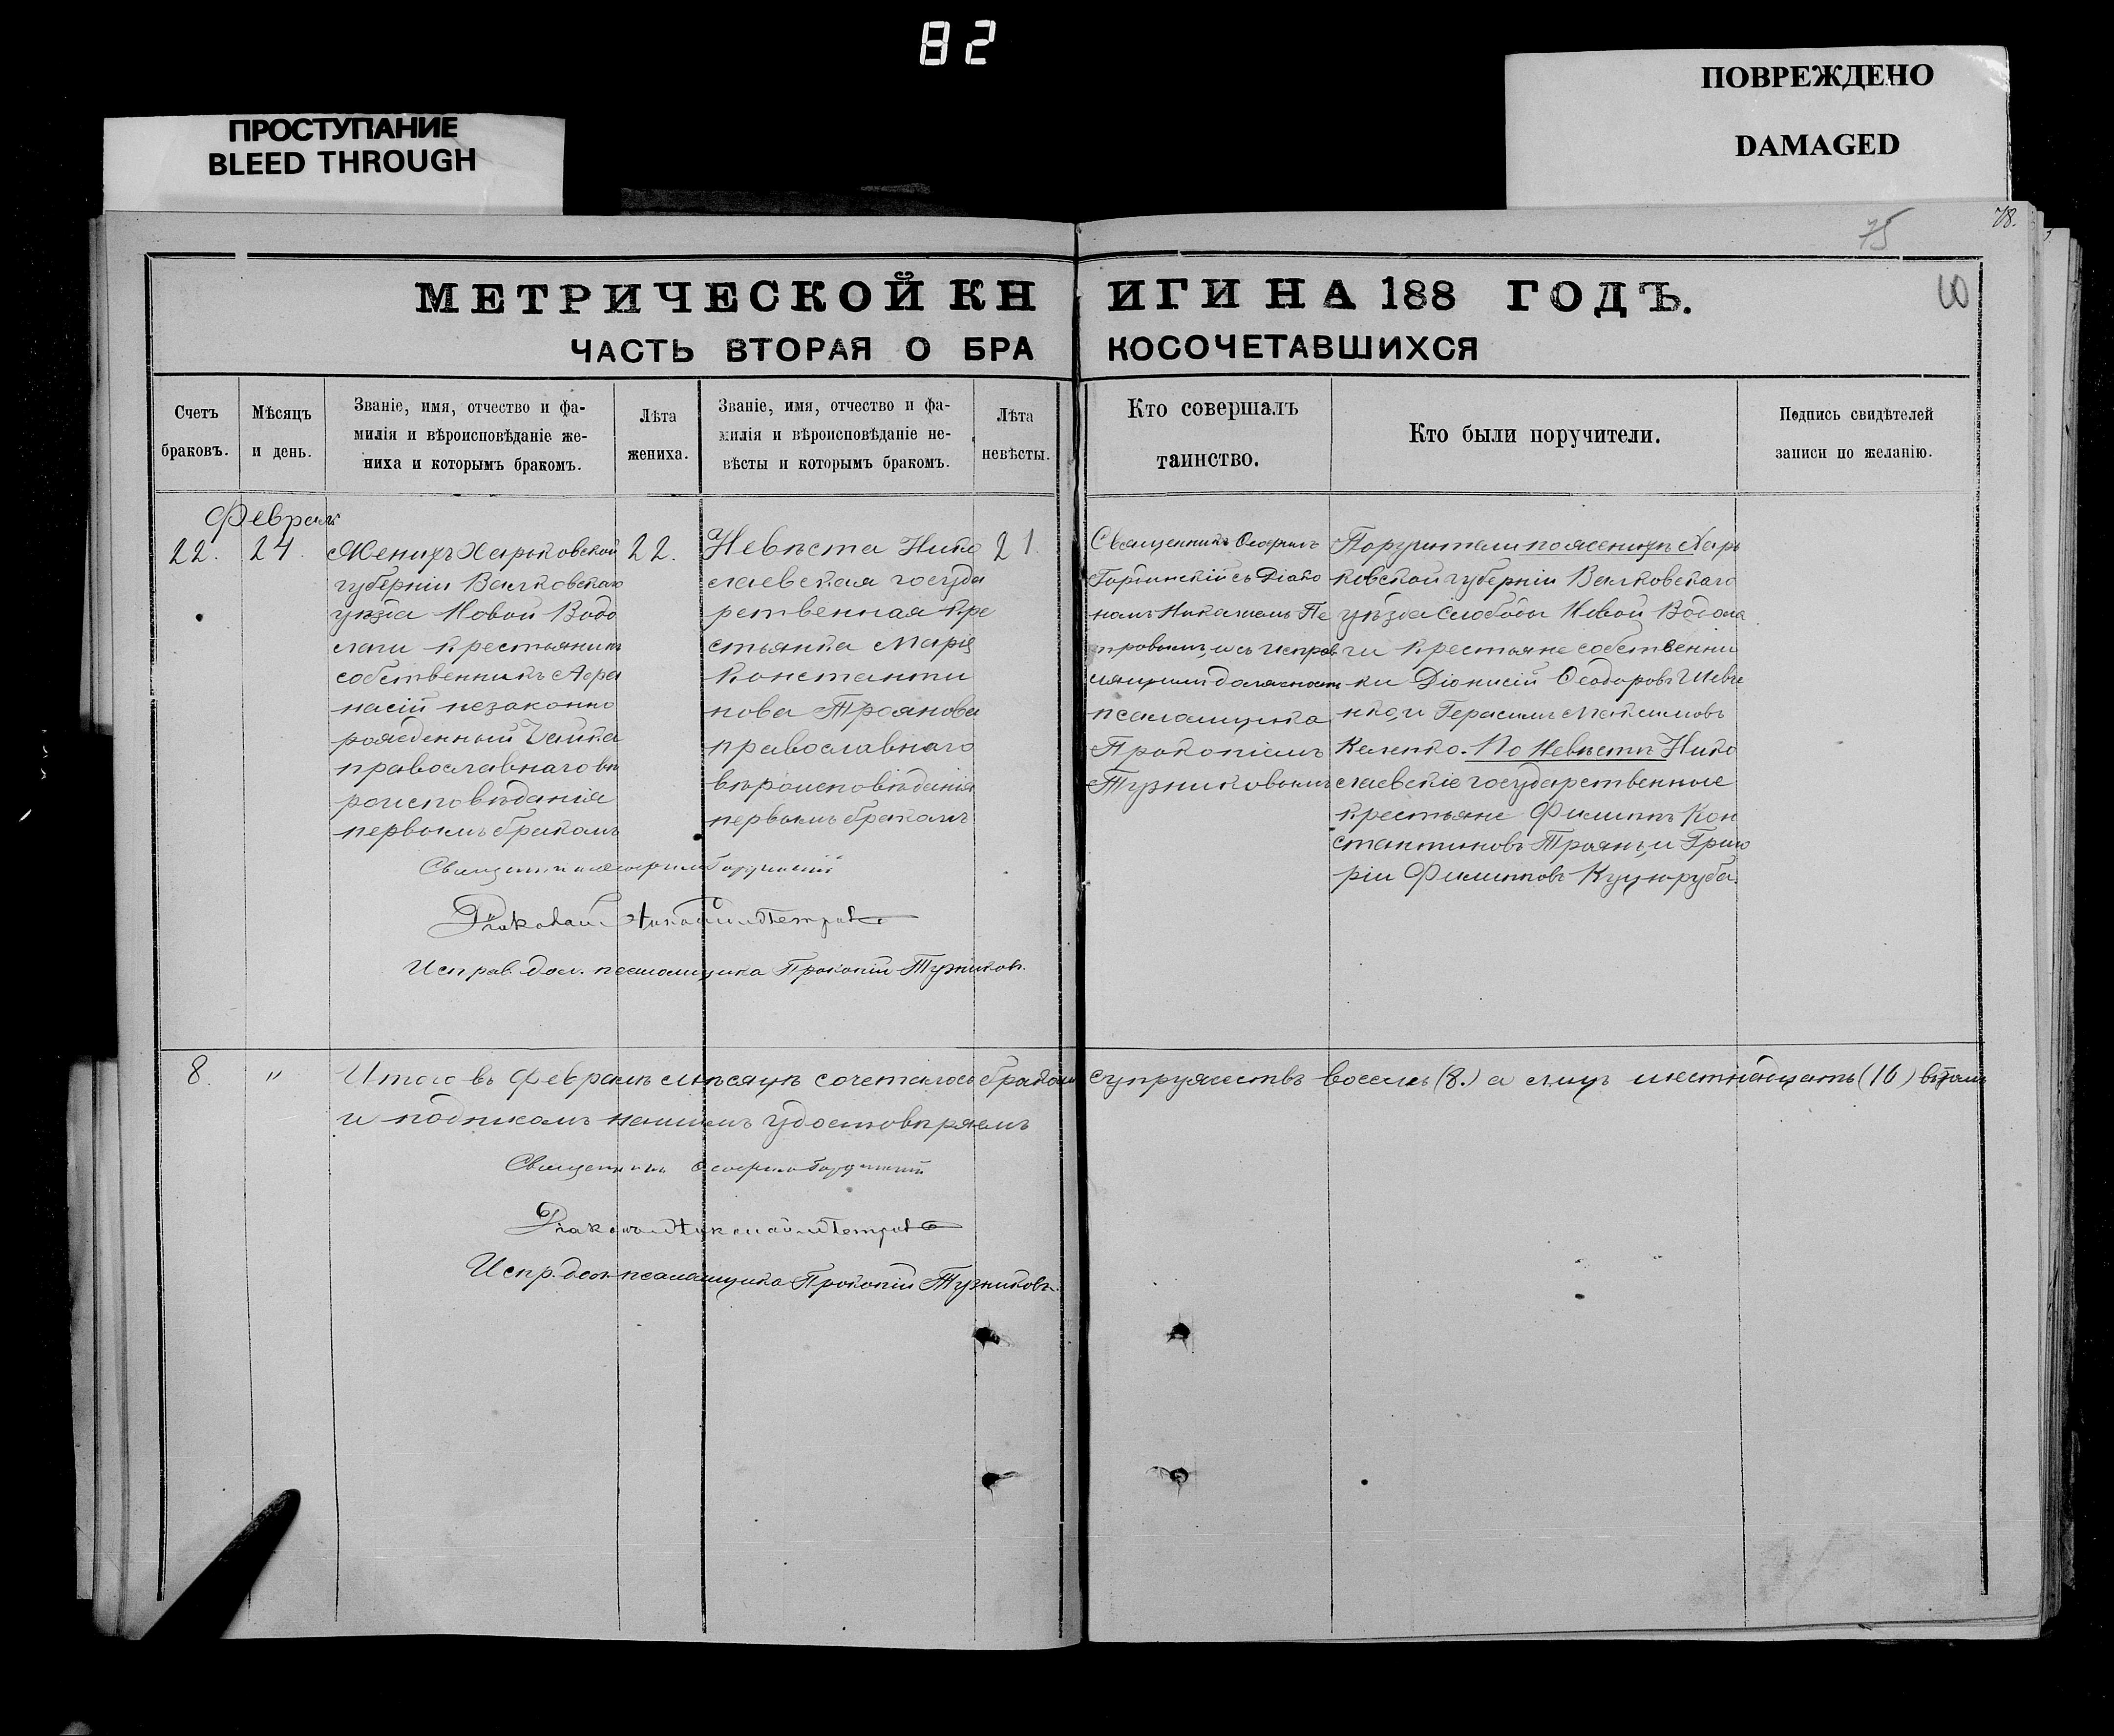 82
ПРОСТУПАНИЕ
BLEED THROUGH
ПОВРЕЖДЕНО
DAMAGED
75
78.
МЕТРИЧЕСКОЙ КНИГИ НА 188 ГОДЪ.
ЧАСТЬ ВТОРАЯ О БРАКОСОЧЕТАВШИХСЯ
Счетъ
браковъ.
Мѣсяцъ
и день.
Званіе, имя, отчество и фа-
милія и вѣроисповѣданіе же-
ниха и которымъ бракомъ.
Лѣта
жениха.
Званіе, имя, отчество и фа-
милія и вѣроисповѣданіе не-
вѣсты и которымъ бракомъ.
Лѣта
невѣсты.
Кто совершалъ
таинство.
Кто были поручители.
Подпись свидѣтелей
записи по желанію.
Февраль
22.
24.
Женихъ Харьковской
губерніи Валковскаго
уѣзда Новой Водо
лаги крестьянинъ
собственникъ Афа
насій незаконно
рожденный Чайка
православнаго вѣ
роисповѣданія
первымъ бракомъ
22.
Невѣста Нико
лаевская госуда
рственная кре
стьянка Марія
Константи
нова Троянова
православнаго
вѣроисповѣданія
первымъ бракомъ
21.
Священникъ
съ Діако
номъ Николаемъ Пе
тровымъ, и съ исправ
ляющимъ должность
псаломщика
Прокопіемъ
Тузниковымъ
Поручители по женихѣ Харь
ковской губерніи Валковскаго
уѣзда слободы Новой Водола
ги крестьяне собственни
ки Діонисій Ѳеодоровъ Шевче
нко, и Герасимъ Максимовъ
Каленко. По Невѣстѣ Нико
лаевскіе государственные
крестьяне Филиппъ Кон
стантиновъ Троянъ, и Григо
рій Филипповъ Куцуруба.
Священникъ
Діаконъ Николай Петровъ
Исправ. дол. псаломщика Прокопій Тузниковъ.
8.
"
Итого въ Февралѣ мѣсяцѣ сочеталось бракомъ супружествъ восемь (8.) а лицъ шестнадцать (16) въ томъ
и подписомъ нашимъ удостовѣряемъ
Священникъ
Діаконъ Николай Петровъ
Испр. дол. псаломщика Прокопій Тузниковъ.